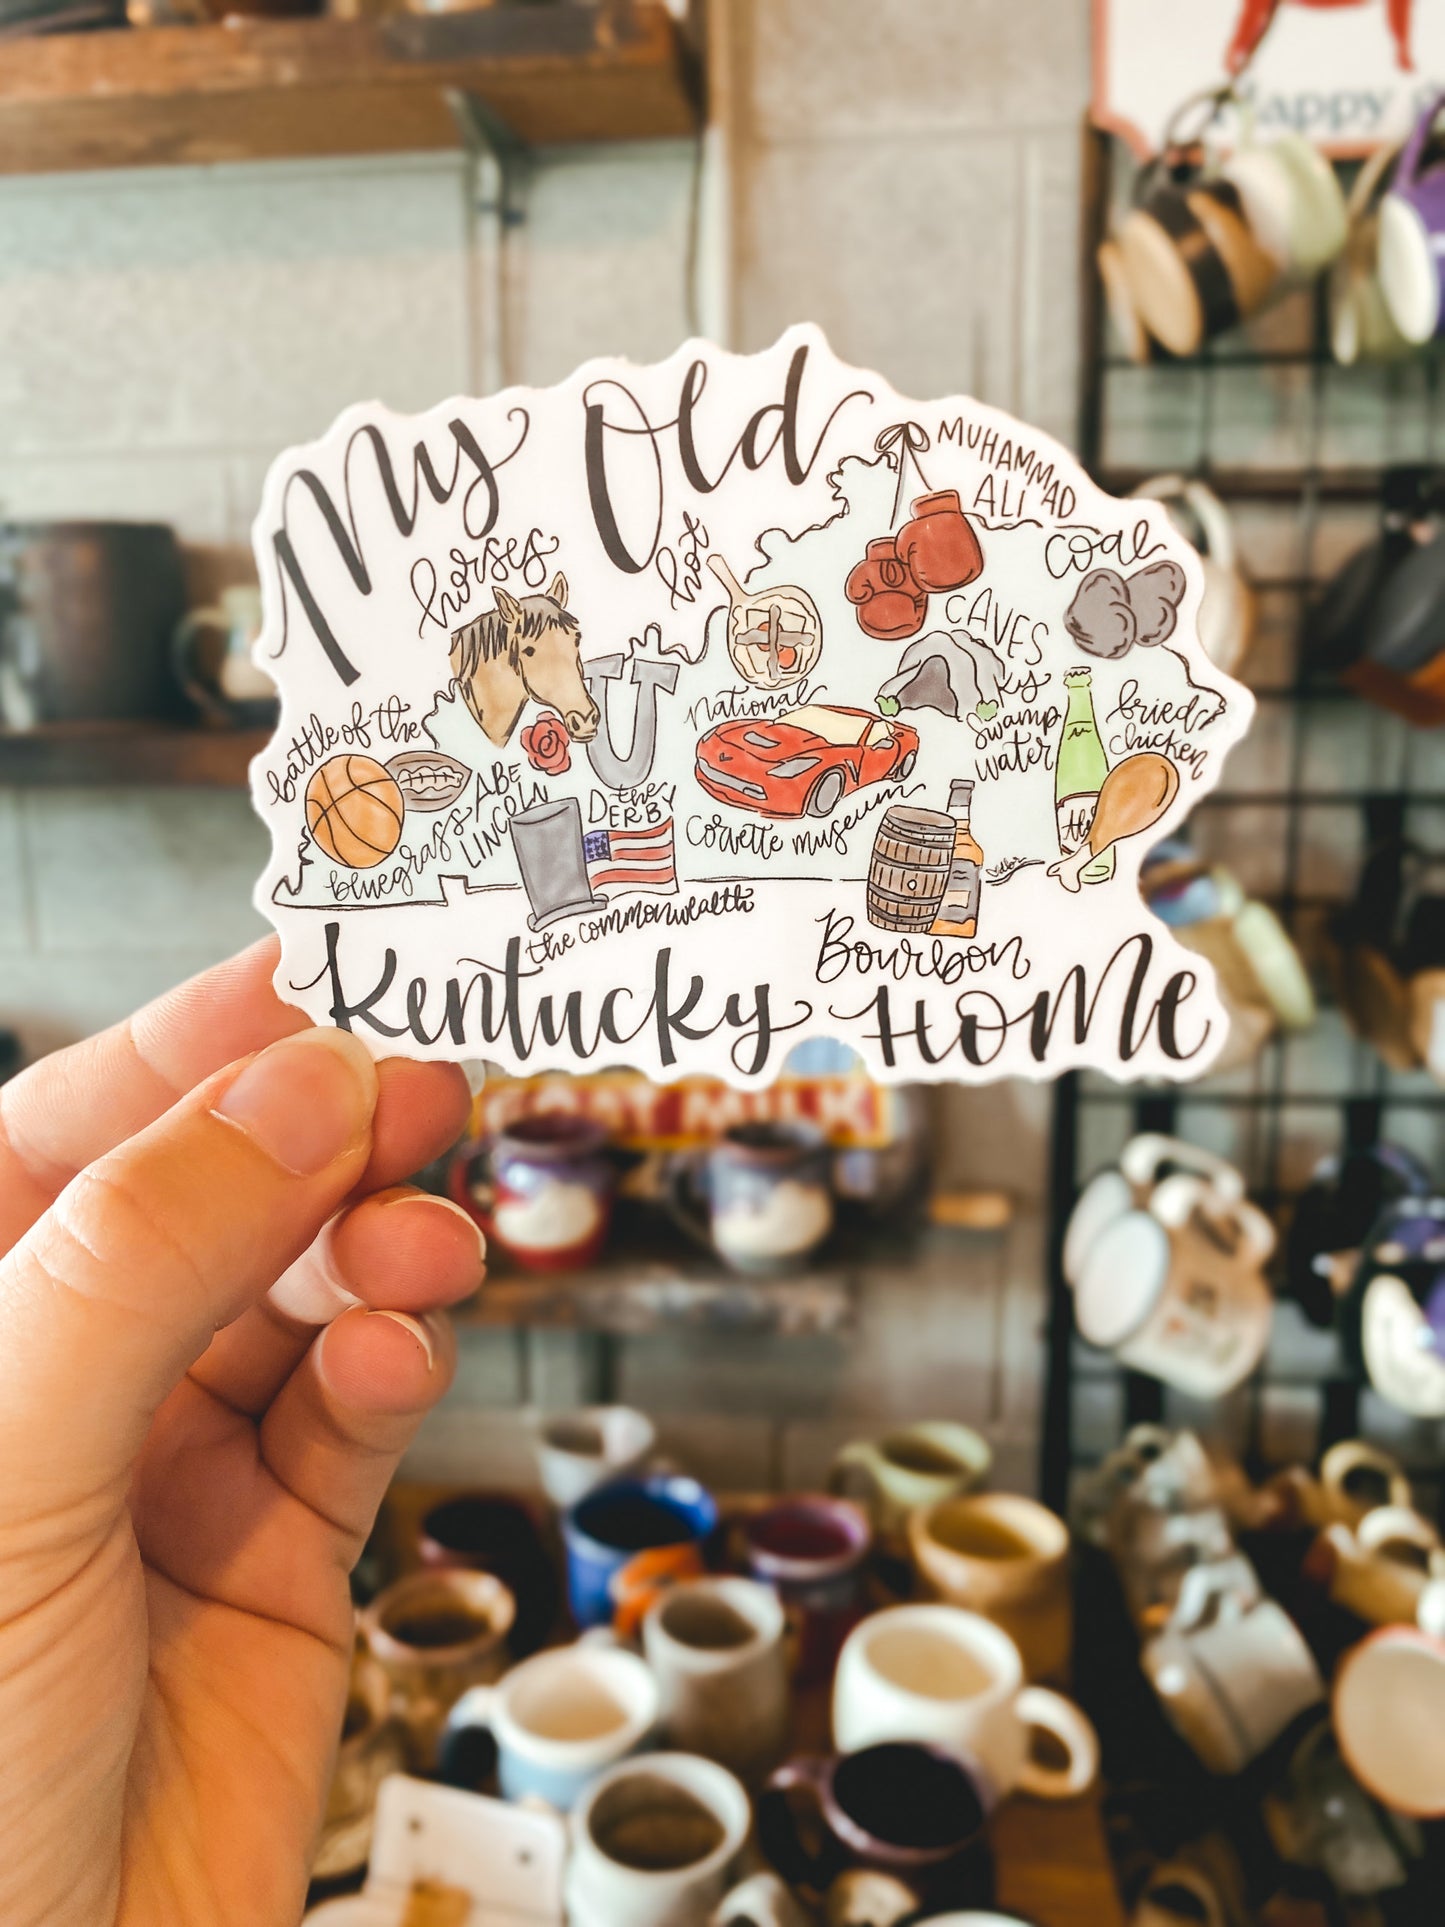 Happy
My Old
MUHAMMAD
ALI
horses
hot
coal
CAVES
battle of the
bluegrass
ABE
LINCOLN
the
DERBY
national
corvette museum
ky
swamp
water
fried
chicken
the commonwealth
Bourbon
Kentucky Home
MILK